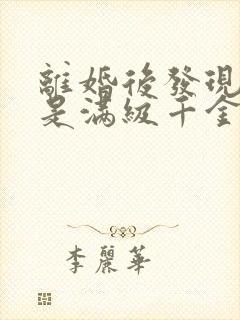 離婚後發現
是滿級千金
李麗華